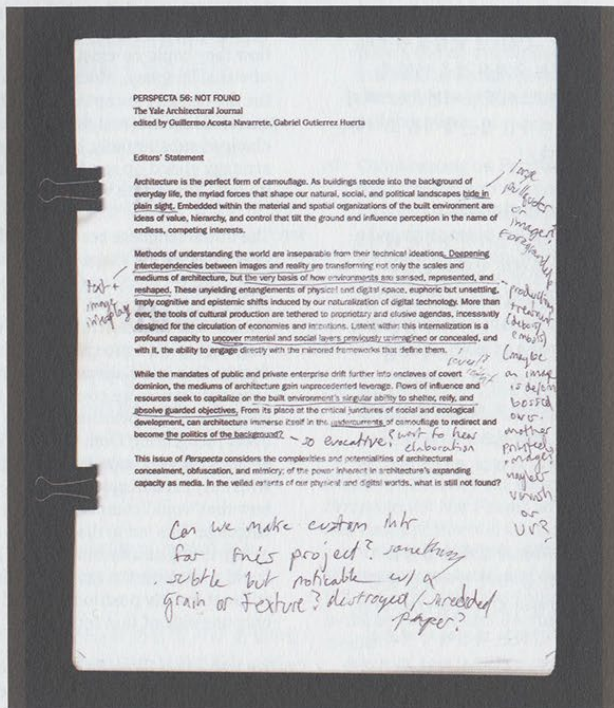 PERSPECTA 56: NOT FOUND
The Yale Architectural Journal
edited by Guillermo Acosta Navarrete, Gabriel Gutierrez Huerta
Editors' Statement
Architecture is the perfect form of camouflage. As buildings recede into the background of
everyday life, the myriad forces that shape our natural, social, and political landscapes hide in
plain sight. Embedded within the material and spatial organizations of the built environment are
ideas of value, hierarchy, and control that tilt the ground and influence perception in the name of
endless, competing interests.
Methods of understanding the world are inseparable from their technical ideations. Deepening
interdependencies between images and reality are transforming not only the scales and
mediums of architecture, but the very basis of how environments are sensed, represented, and
reshaped. These unyielding entanglements of physical and digital space, euphoric but unsettling,
imply cognitive and epistemic shifts induced by our naturalization of digital technology. More than
ever, the tools of cultural production are tethered to proprietary and elusive agendas, incessantly
designed for the circulation of economies and intentions. Latent within this internalization is a
profound capacity to uncover material and social layers previously unimagined or concealed, and
with it, the ability to engage directly with the mirrored frameworks that define them.
While the mandates of public and private enterprise drift further into enclaves of covert
dominion, the mediums of architecture gain unprecedented leverage. Flows of influence and
resources seek to capitalize on the built environment's singular ability to shelter, reify, and
absolve guarded objectives. From its place at the critical junctures of social and ecological
development, can architecture immerse itself in the undercurrents of camouflage to redirect and
become the politics of the background?
- so evocative? want to hear
elaboration
This issue of Perspecta considers the complexities and potentialities of architectural
concealment, obfuscation, and mimicry; of the power inherent in architecture's expanding
capacity as media. In the veiled extents of our physical and digital worlds, what is still not found?
text +
image
interplay
large
or
images?
production
treatment
(deboss/
emboss)
(maybe
an image
is
bossed
over
another
printed
image?
maybe
varnish
or
UV?
Can we make custom
for this project? something
subtle but noticable w/ a
grain or texture? destroyed/shredded
paper?